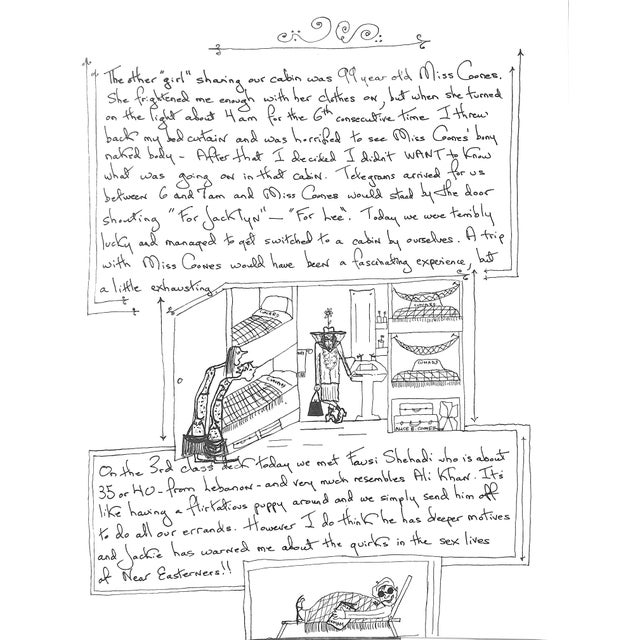 The other "girl" sharing our cabin was 99 year old Miss Coones.
She frightened me enough with her clothes on, but when she turned
on the light about 4am for the 6th consecutive time I threw
back my bed curtain and was horrified to see Miss Coones' bony
naked body - After that I decided I didn't WANT to know
what was going on in that cabin. Telegrams arrived for us
between 6 and 7am and Miss Coones would stand by the door
shouting "For JackTyn" — "For Lee". Today we were terribly
lucky and managed to get switched to a cabin by ourselves. A trip
with Miss Coones would have been a fascinating experience, but
a little exhausting
CUNARD
CUNARD
CUNARD
CUNARD
ALICE B. COONES
On the 3rd class deck today we met Fawsi Shehadi who is about
35 or 40 - from Lebanon - and very much resembles Ali Khan. It's
like having a flirtatious puppy around and we simply send him off
to do all our errands. However I do think he has deeper motives
and Jackie has warned me about the quirks in the sex lives
of Near Easterners!!